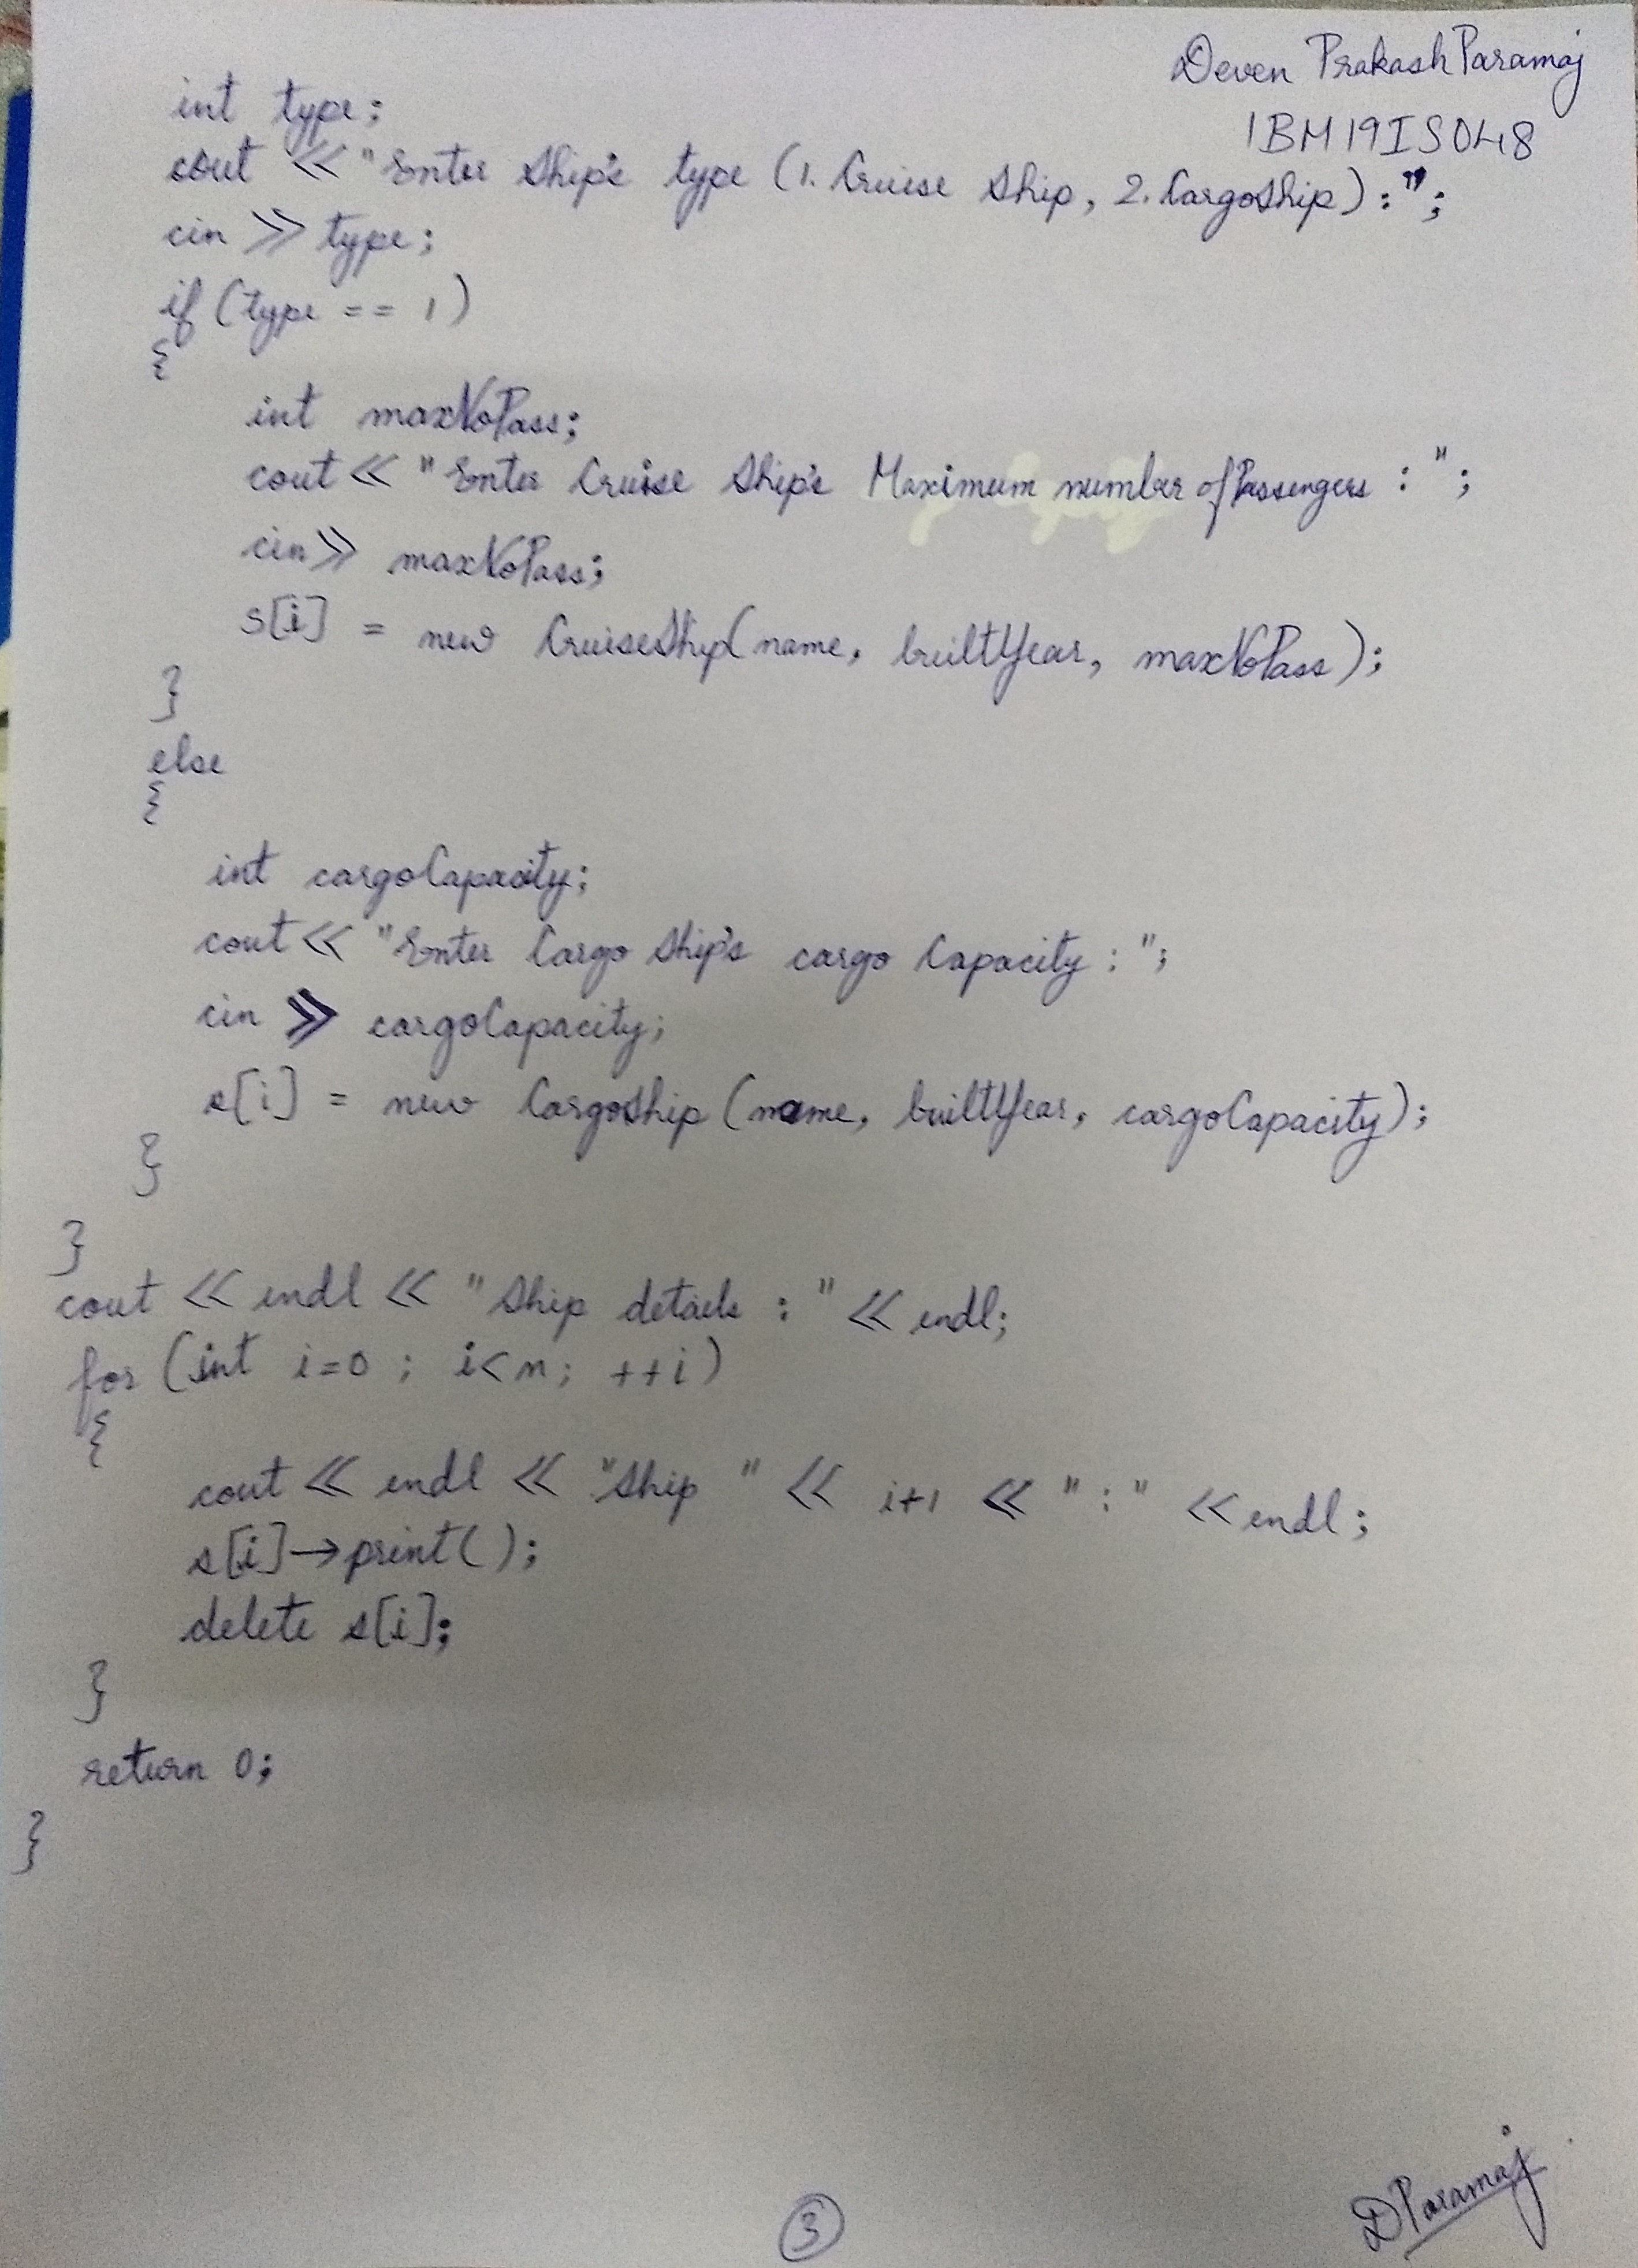 Deven Prakash Paramaj
1BM19IS048
int type;
cout << "Enter Ship's type (1. Cruise Ship, 2. CargoShip) : ";
cin >> type;
if (type == 1)
{
int maxNoPass;
cout << "Enter Cruise Ship's Maximum number of Passengers : ";
cin >> maxNoPass;
s[i] = new CruiseShip(name, builtYear, maxNoPass);
}
else
{
int cargoCapacity;
cout << "Enter Cargo Ship's cargo Capacity : ";
cin >> cargoCapacity;
s[i] = new CargoShip (name, builtYear, cargoCapacity);
}
}
cout << endl << "Ship details : " << endl;
for (int i=0 ; i<n; ++i)
{
cout << endl << "Ship " << i+1 << " : " << endl;
s[i]→print();
delete s[i];
}
return 0;
}
3
DParamaj